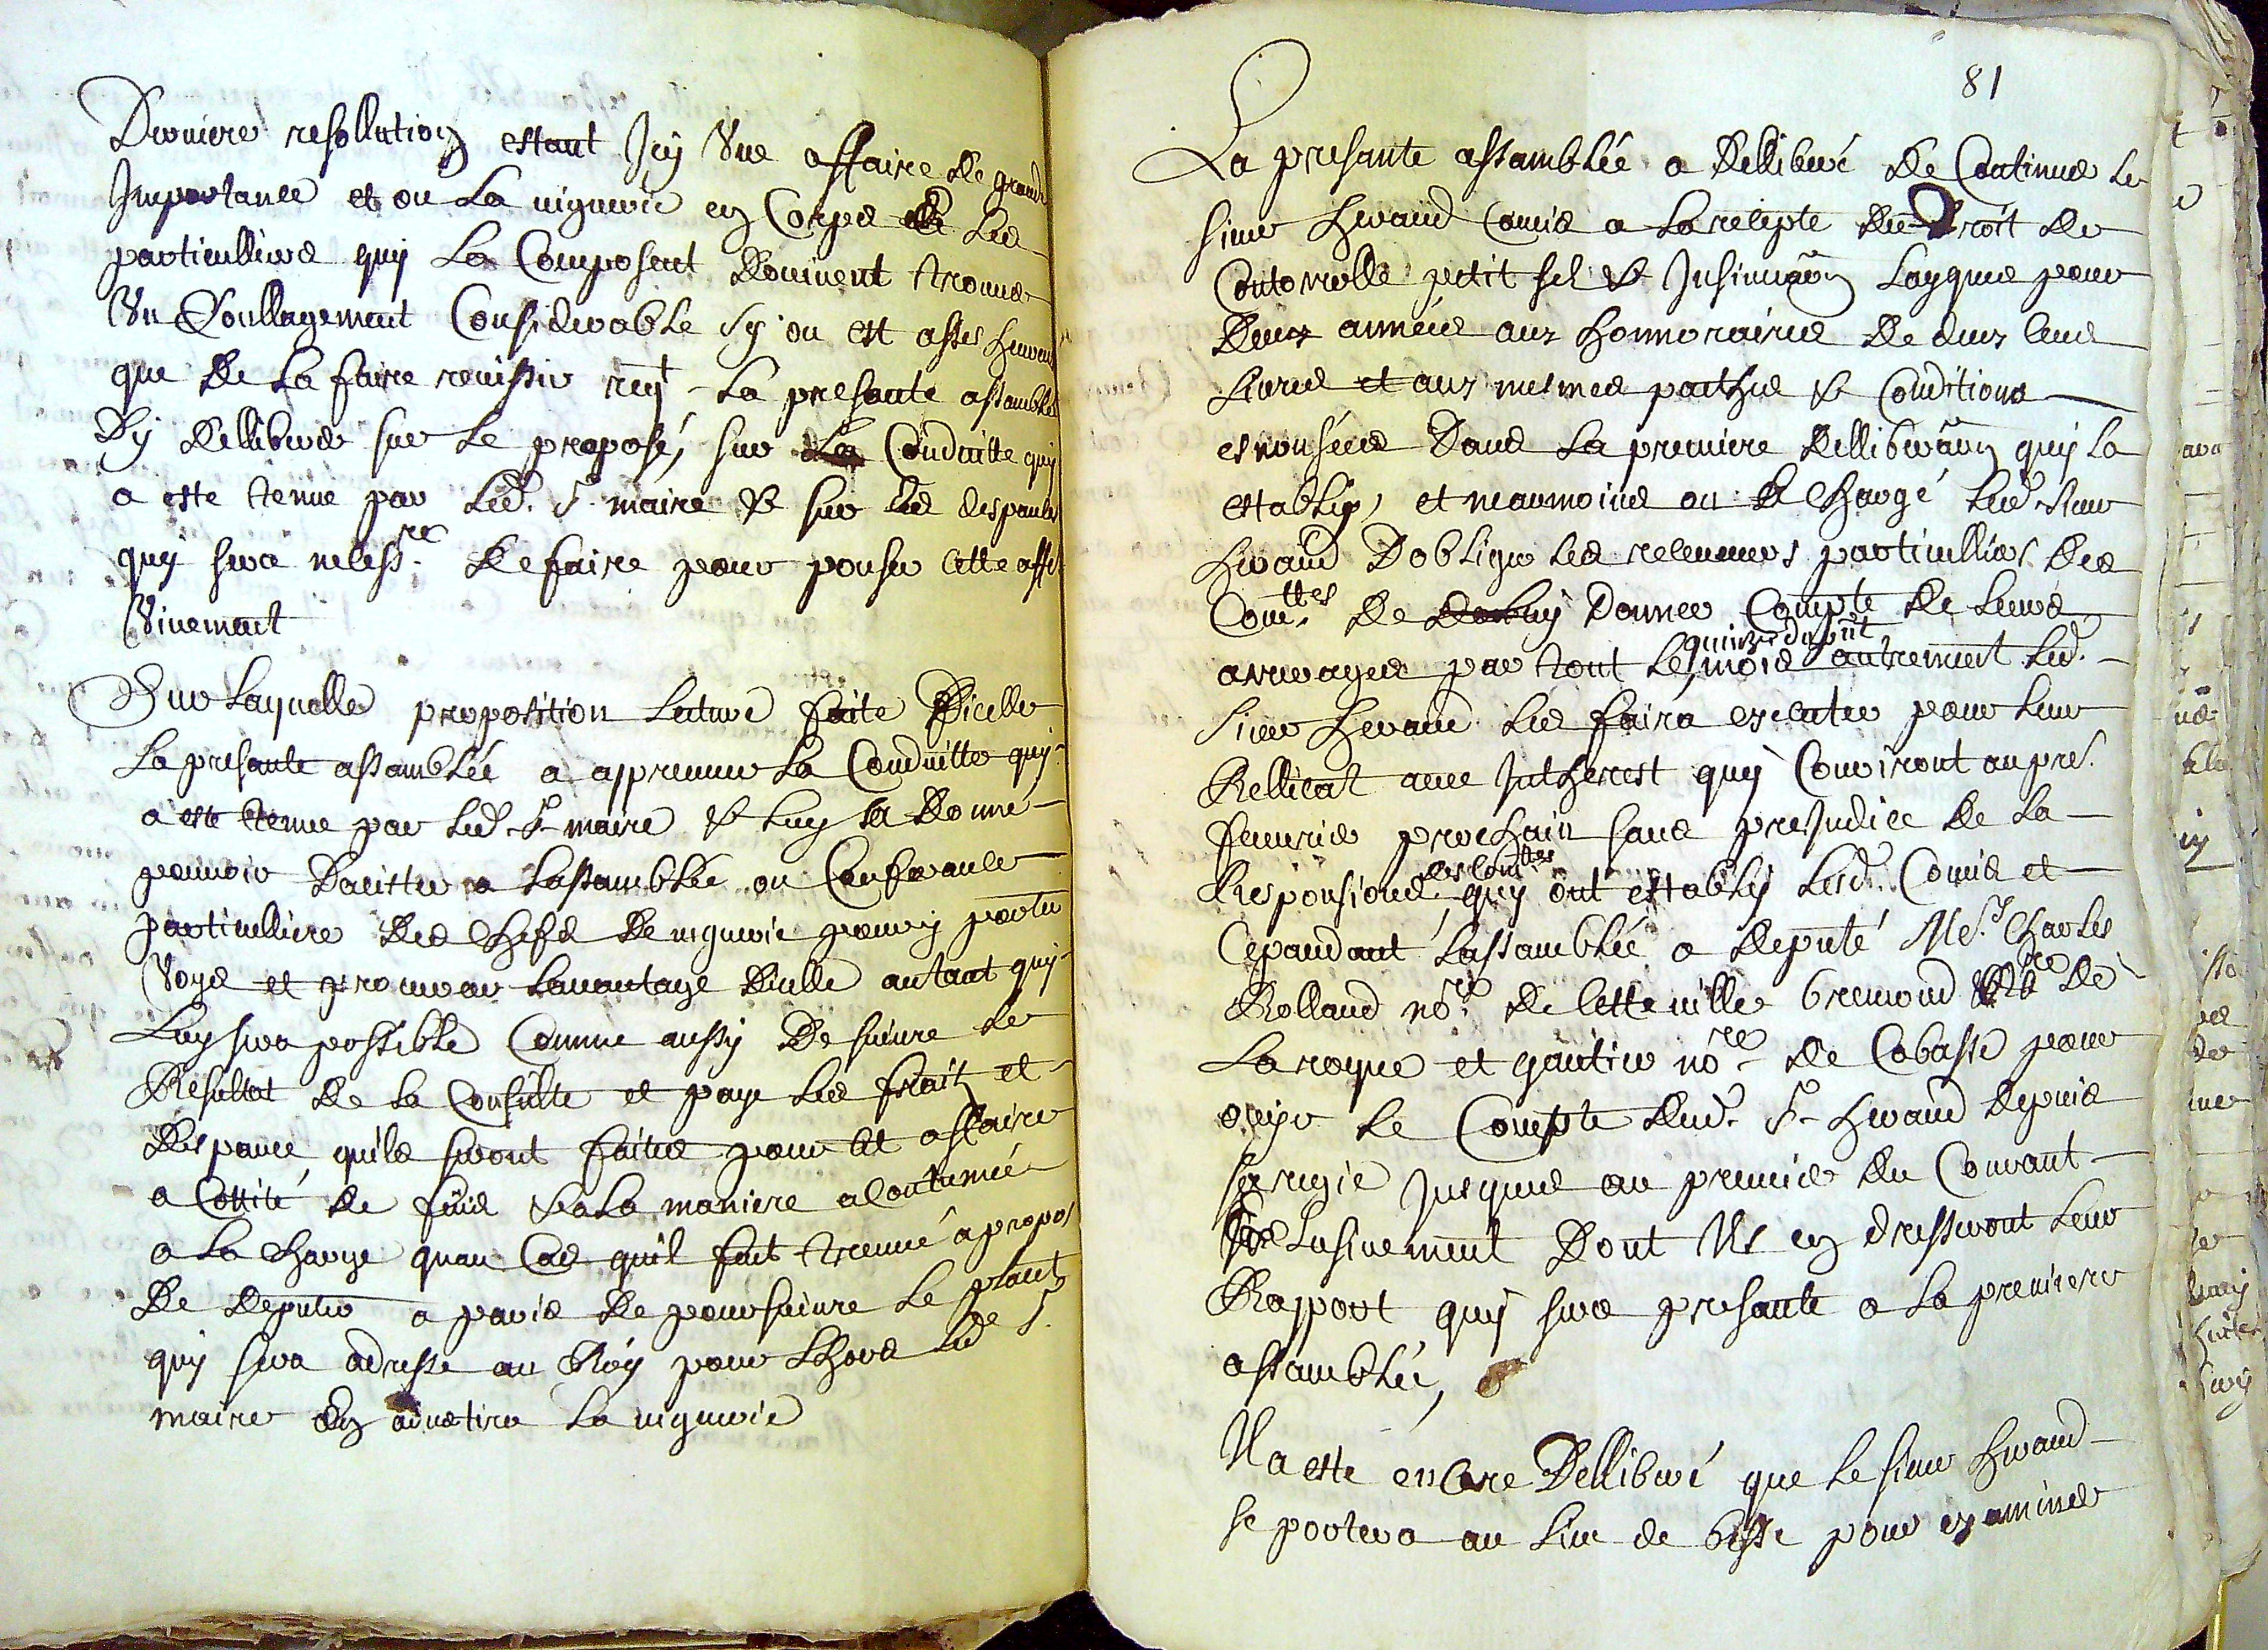 Derniere resollution estant Icy Une affaire de grande
Importance et ou La viguerie en Corps et Les
particulliers quy La Composent doivent trouver
Un Soullagement Considerable Sy on est asses heureux
que de La faire reuissir reqt La presante assamblée
Dy delliberer sur Le proposé, sur La Conduitte quy
a este tenue par Led. Sr maire & sur Les despances
quy sera necessre. de faire pour pousser cette affre
Vivement
Sur Laquelle proposition Lecture faite Dicelle
La presante assamblée a appreuue La Conduitte quy
a este tenue par Led. Sr maire & Luy a donné
pouvoir Dacister a Lassamblée ou Conferance
particulliere des Chefs de viguerie pour y porter
Voye et procurer Lavantage Dicelle autant quy
Luy sera possible Comme aussy De suivre Le
Resultat de la Consulte et paye Les frait et
despance quils seront faites pour cet affaire
a Cottité de fuus & a La maniere acoutumée
a La charge quau Cas quil fut treuvé a propos
De deputer a paris de poursuivre Le placet
quy sera adresse au Roy pour Lhors Led Sr.
maire En advertira La viguerie
81
La presante assamblée a delliberé de Continuer Le
sieur heraud Comis a La recepte du Droit de
Contorrolle petit sel & Insinuaõn Layques pour
deux années aux honnoraires de deux cens
Livres et aux mesmes pacthes & Conditions
esnonsées Dans La premiere delliberaõn quy La
estably, et neanmoins on a Chargé Led. sieur
heraud Dobliger Les receveurs particulliers des
Comttes. de donner Compte de Leurs
arrerages par tout Le quinze du pñt mois autrement Led.
sieur heraud Les faira executer pour Leur
Rellicat avec Intherest quy Couriront au pre.
feuvrier prochain sans presjudice de La
Responsions des Comttes quy ont estably Lesd. Comis et
Cepandant Lassamblée a deputé Me. Charles
Rolland nore de cette ville bremond nore de
La roque et gautier nore de Cabasse pour
ouyr Le Compte dud. Sr heraud depuis
sa regie Jusques au premier du Courant
Inclusivement Dont Ils en dresseront Leur
Rapport quy sera presante a La premiere
assamblée,
Il a este encore Delliberé que Le sieur heraud
se portera au Lieu de besse pour examiner